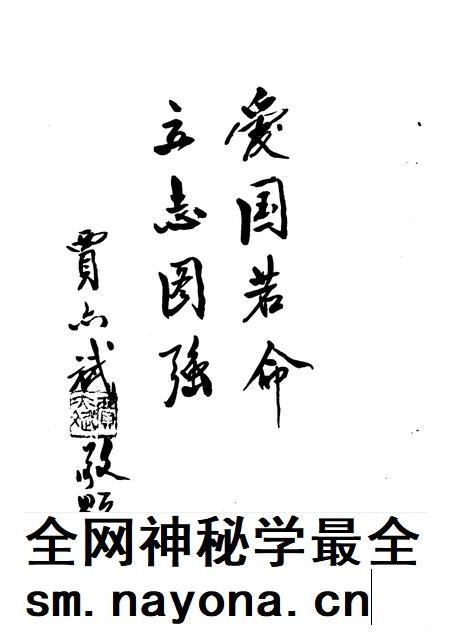 愛国若命
立志图强
賈亦斌
敬題
全网神秘学最全
sm.nayona.cn